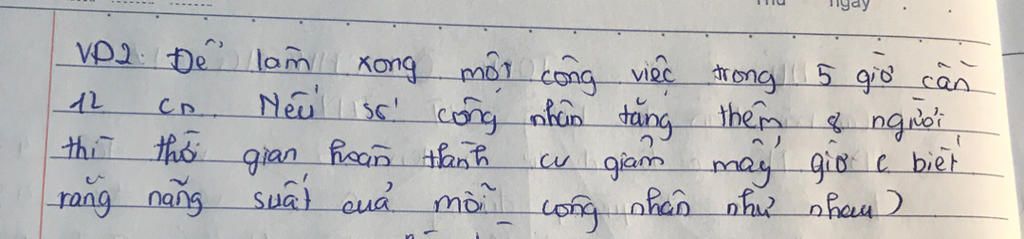 ngày
VD2: Để làm xong một công việc trong 5 giờ cần
12 CN. Nếu số công nhân tăng thêm 8 người
thì thời gian hoàn thành cv giảm mấy giờ ( biết
rằng năng suất của mỗi công nhân như nhau)